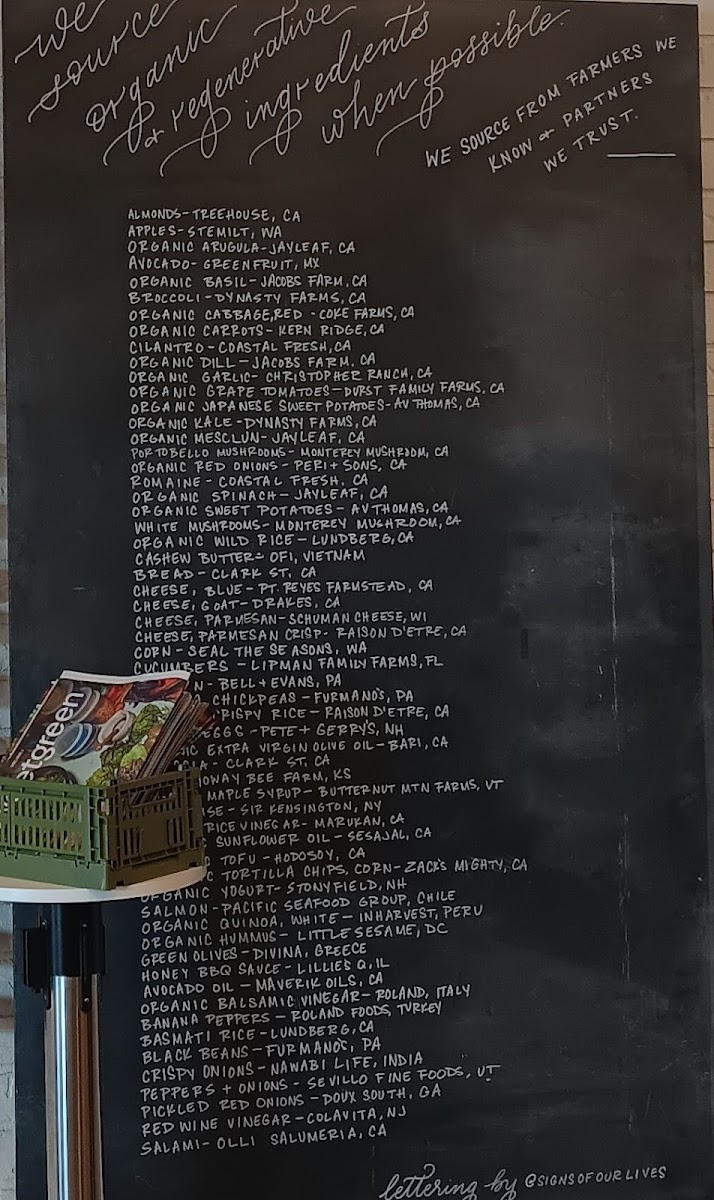 we
source
organic
& regenerative
ingredients
when possible.
WE SOURCE FROM FARMERS WE
KNOW & PARTNERS
WE TRUST.
ALMONDS-TREEHOUSE, CA
APPLES-STEMILT, WA
ORGANIC ARUGULA-JAYLEAF, CA
AVOCADO-GREENFRUIT, MX
ORGANIC BASIL-JACOBS FARM, CA
BROCCOLI-DYNASTY FARMS, CA
ORGANIC CABBAGE,RED - COKE FARMS, CA
ORGANIC CARROTS-KERN RIDGE, CA
CILANTRO-COASTAL FRESH, CA
ORGANIC DILL-JACOBS FARM, CA
ORGANIC GARLIC- CHRISTOPHER RANCH, CA
ORGANIC GRAPE TOMATOES-DURST FAMILY FARMS, CA
ORGANIC JAPANESE SWEET POTATOES-AV THOMAS, CA
ORGANIC KALE-DYNASTY FARMS, CA
ORGANIC MESCLUN-JAYLEAF, CA
PORTOBELLO MUSHROOMS - MONTEREY MUSHROOM, CA
ORGANIC RED ONIONS - PERI + SONS, CA
ROMAINE-COASTAL FRESH, CA
ORGANIC SPINACH-JAYLEAF, CA
ORGANIC SWEET POTATOES - AV THOMAS, CA
WHITE MUSHROOMS-MONTEREY MUSHROOM, CA
ORGANIC WILD RICE-LUNDBERG, CA
CASHEW BUTTER- OFI, VIETNAM
BREAD-CLARK ST. CA
CHEESE, BLUE-PT. REYES FARMSTEAD, CA
CHEESE, GOAT-DRAKES, CA
CHEESE, PARMESAN-SCHUMAN CHEESE, WI
CHEESE, PARMESAN CRISP- RAISON D'ETRE, CA
CORN-SEAL THE SEASONS, WA
CUCUMBERS -LIPMAN FAMILY FARMS, FL
N-BELL+EVANS, PA
CHICKPEAS-FURMANO'S, PA
RISPY RICE-RAISON D'ETRE, CA
EGGS -PETE+ GERRY'S, NH
IC EXTRA VIRGIN OLIVE OIL-BARI, CA
CIA-CLARK ST. CA
OWAY BEE FARM, KS
MAPLE SYRUP-BUTTERNUT MTN FARMS, VT
ISE-SIR KENSINGTON, NY
RICE VINEGAR-MARUKAN, CA
SUNFLOWER OIL-SESAJAL, CA
C TOFU-HODOSOY, CA
C TORTILLA CHIPS, CORN-ZACK'S MIGHTY, CA
ORGANIC YOGURT-STONYFIELD, NH
SALMON-PACIFIC SEAFOOD GROUP, CHILE
ORGANIC QUINOA, WHITE-INHARVEST, PERU
ORGANIC HUMMUS-LITTLE SESAME, DC
GREEN OLIVES-DIVINA, GREECE
HONEY BBQ SAUCE-LILLIE'S Q, IL
AVOCADO OIL-MAVERIK OILS, CA
ORGANIC BALSAMIC VINEGAR-ROLAND, ITALY
BANANA PEPPERS - ROLAND FOODS, TURKEY
BASMATI RICE-LUNDBERG, CA
BLACK BEANS-FURMANO'S, PA
CRISPY ONIONS-NAWABI LIFE, INDIA
PEPPERS + ONIONS - SEVILLO FINE FOODS, UT
PICKLED RED ONIONS-DOUX SOUTH, GA
RED WINE VINEGAR-COLAVITA, NJ
SALAMI-OLLI SALUMERIA, CA
etgreen
lettering by @SIGNSOFOURLIVES